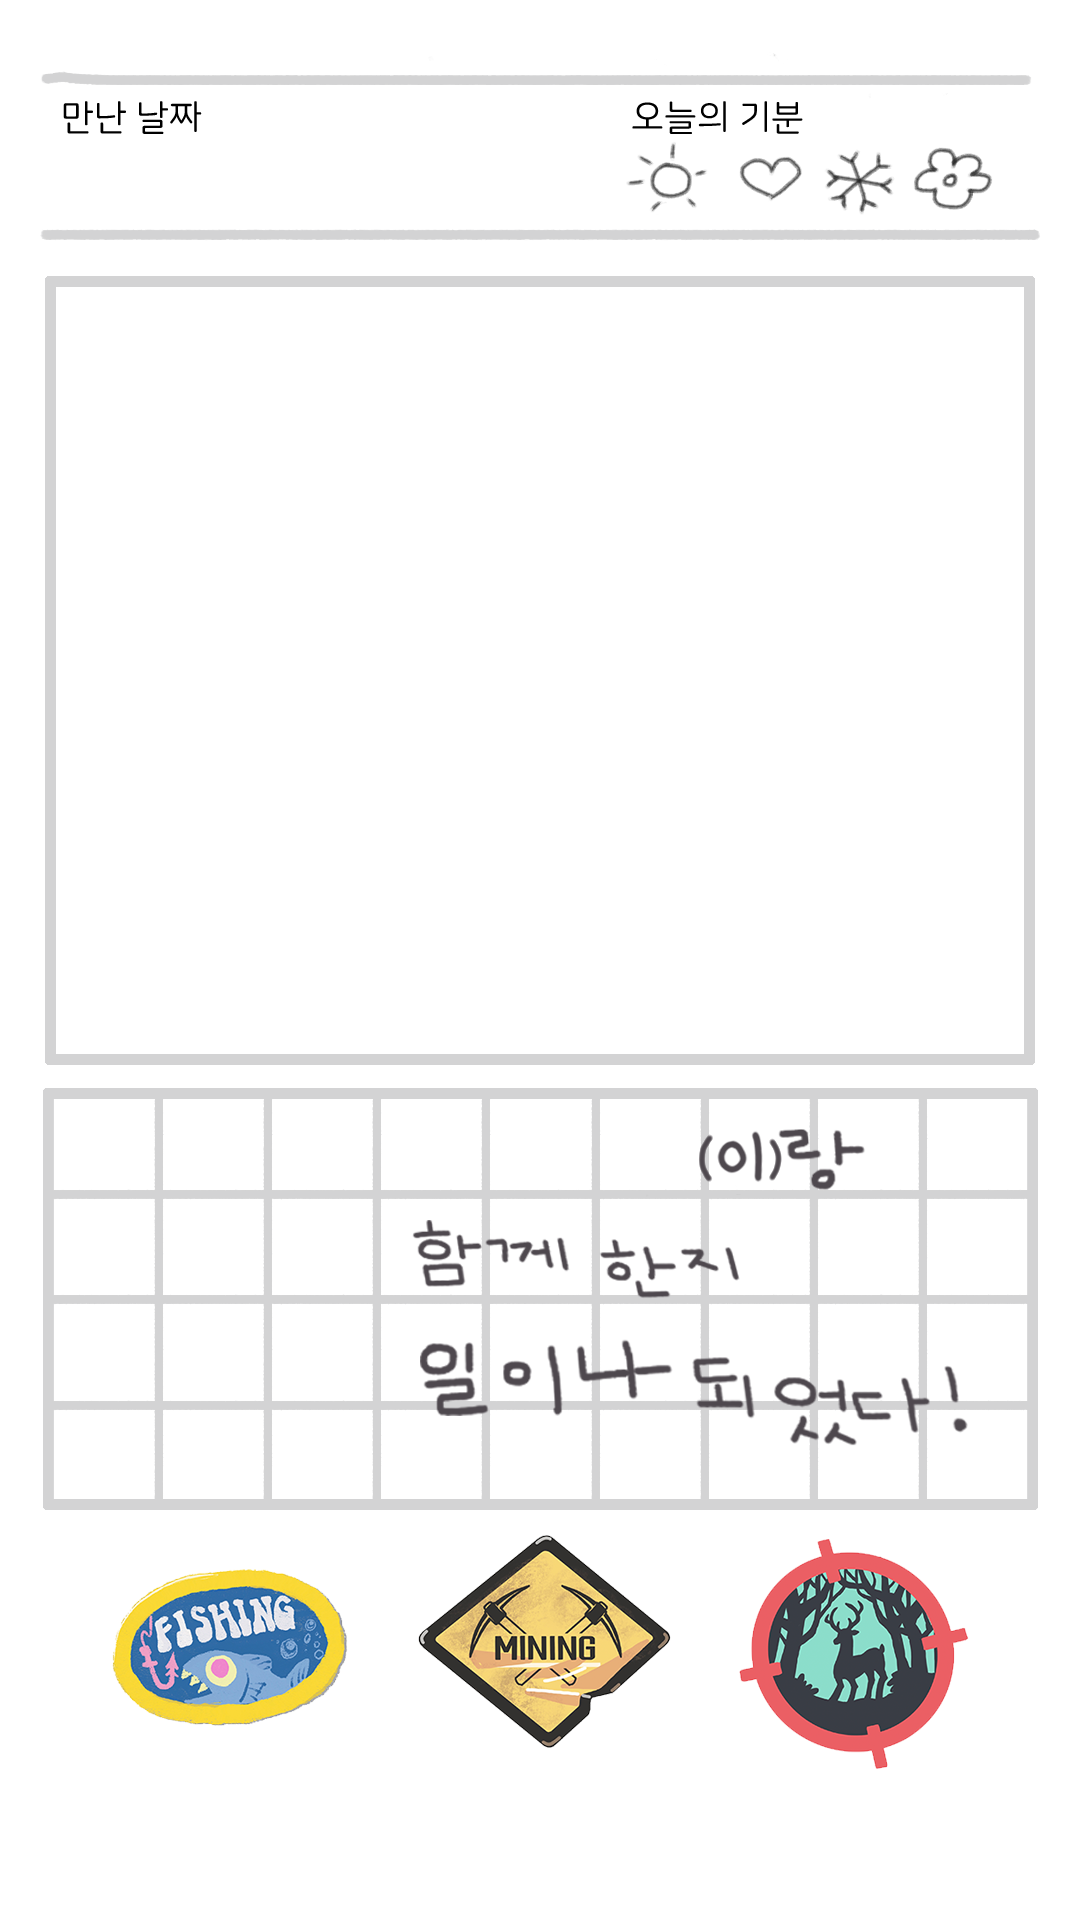 만난 날짜 오늘의 기분
(이)랑
함께 한지
일이나 되었다!
FISHING MINING